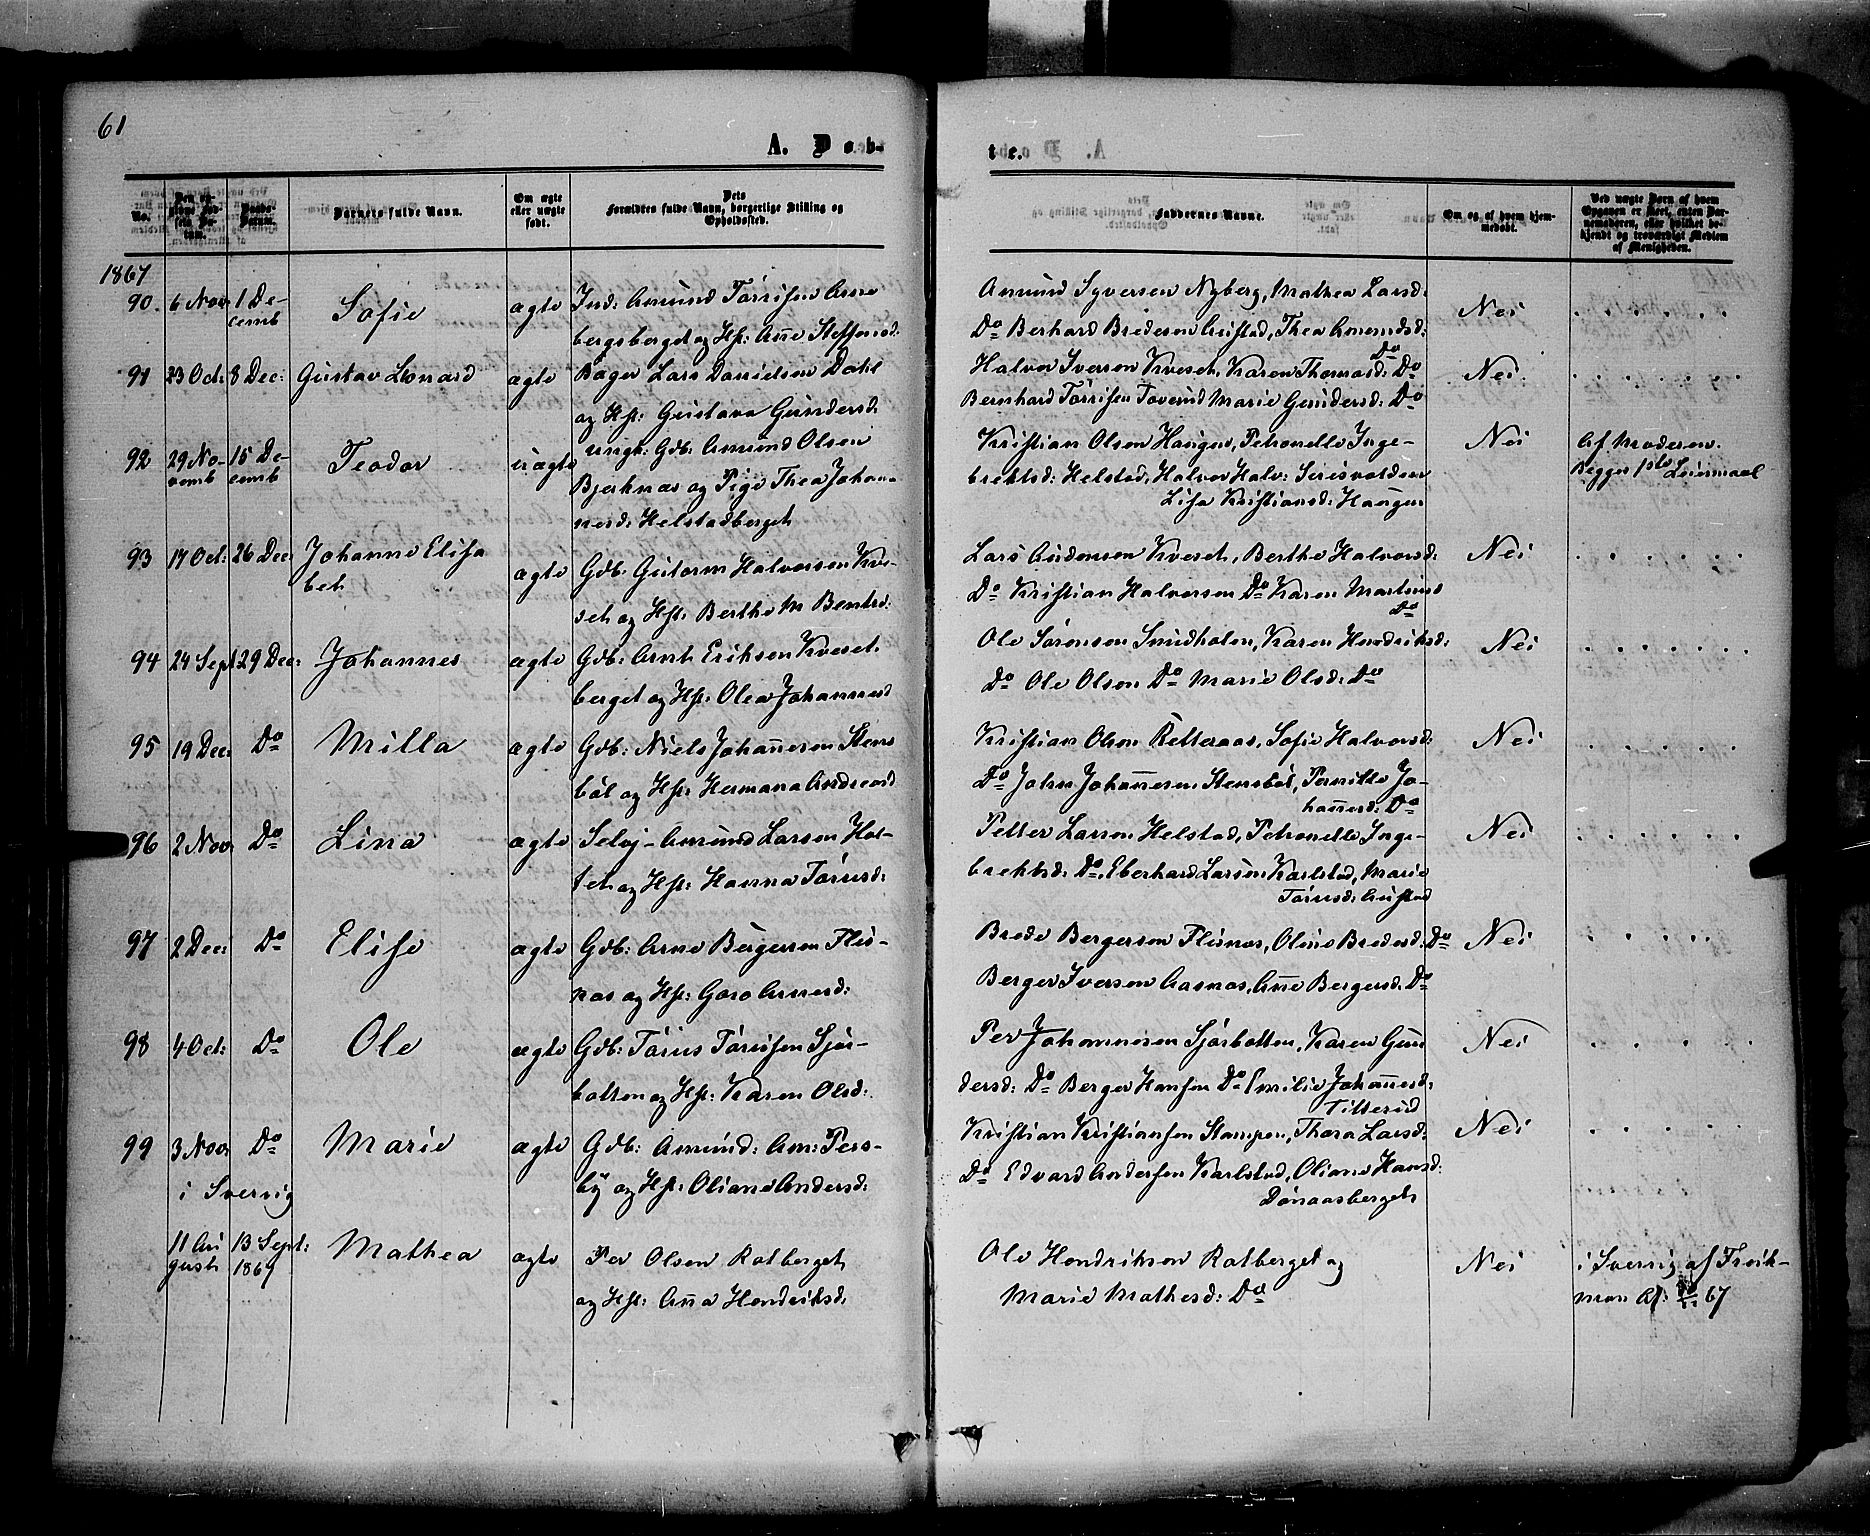 61
A. Døb-
te.
No.
Den opgivne Fødsels Datum.
Daabs-Datum.
Barnets fulde Navn.
Om ægte eller uægte født.
Dets Forældres fulde Navn, borgerlige Stilling og Opholdssted.
Faddernes Navne.
Om og af hvem hjemmedøbt.
Ved uægte Børn af hvem Opgaven er skeet, enten Barnemoderen, eller hvilket bekjendt og troværdigt Medlem af Menigheden.
1867
90. 6 Nov 1 De-
cemb Sofie ægte Ind: Amund Torrisen Arne
bergsberget og Hst: Ane Steffensd:
Amund Syversen Nyberg, Mathea Larsd:
Do Berhard Bredesen Austad, Thea Amundsd: Nei
91 23 Oct: 8 Dec: Gustav Leonard ægte Bager Lars Danielsen Dahl
og Hst: Gustava Gundersd:
Halvor Iversen Kveset, Karen Thomasd: Do
Bernhard Torrisen Toverud Marie Gundersd: Do Nei
92 29 No-
vemb 15 De-
cemb Teodor uægte ungk: Gdb: Amund Olsen
Bjerknæs og Pige Thea Johan-
nesd: Helstadberget
Kristian Olsen Haugen, Petronelle Inge-
brektsd: Helstad, Halvor Halv:
Lise Kristiansd: Haugen Nei Af Moderen.
Begges 1ste Leiermaal
93 17 Oct: 26 Dec: Johanne Elisa
bet ægte Gdb: Gutorm Halvorsen Kve-
set og Hst: Berthe M Bentsd:
Lars Audensen Kveset, Berthe Halvorsd:
Do Kristian Halvorsen Do Karen Martinsd
Do Nei
94 24 Sept 29 Dec: Johannes ægte Gdb: Arnt Eriksen Kveset-
berget og Hst: Olea Johannesd
Ole Sørensen Smidholen, Karen Hendriksd:
Do Ole Olsen Do Marie Olsd: Do Nei
95 19 Dec: Do Milla ægte Gdb: Niels Johannesen Stens
bøl og Hst: Hermana Andreasd
Kristian Olsen Retteraas, Sofie Halvorsd:
Do Johan Johannesen Stensbøl, Pernille Jo-
hannesd: Do Nei
96 2 Nov Do Lina ægte Selvj- Amund Larsen Hol-
tet og Hst: Hanna Torrisd:
Petter Larsen Helstad, Petronelle Inge-
brektsd: Do, Eberhard Larsen Karlstad, Marie
Torrisd: Austad Nei
97 2 Dec: Do Elise ægte Gdb: Arne Bergersen Flis-
næs og Hst: Goro Arnesd:
Brede Bergersen Flisnæs, Oline Bredesd: Do
Berger Iversen Aasnæs, Ane Bergersd: Do Nei
98 4 Oct: Do Ole ægte Gdb: Torris Torrisen Sjør-
botten og Hst: Karen Olsd:
Per Johannesen Sjørbotten, Karen Gun
dersd: Do Berger Hansen Do Emilie Johannesd:
Titterud Nei
99 3 Nov Do
i Sverrig Marie ægte Gdb: Amund: Am: Pers-
by og Hst: Oliane Andersd:
Kristian Kristiansen Stampen, Thora Larsd:
Do Edvard Andersen Karlstad, Oliane Hansd:
Dønaasberget Nei
11 Au
gust 13 Sept:
1867 Mathea ægte Per Olsen Rotberget
og Hst: Anna Hendriksd:
Ole Hendriksen Rotberget og
Marie Mathesd: Do Nei i Sverrig af
67